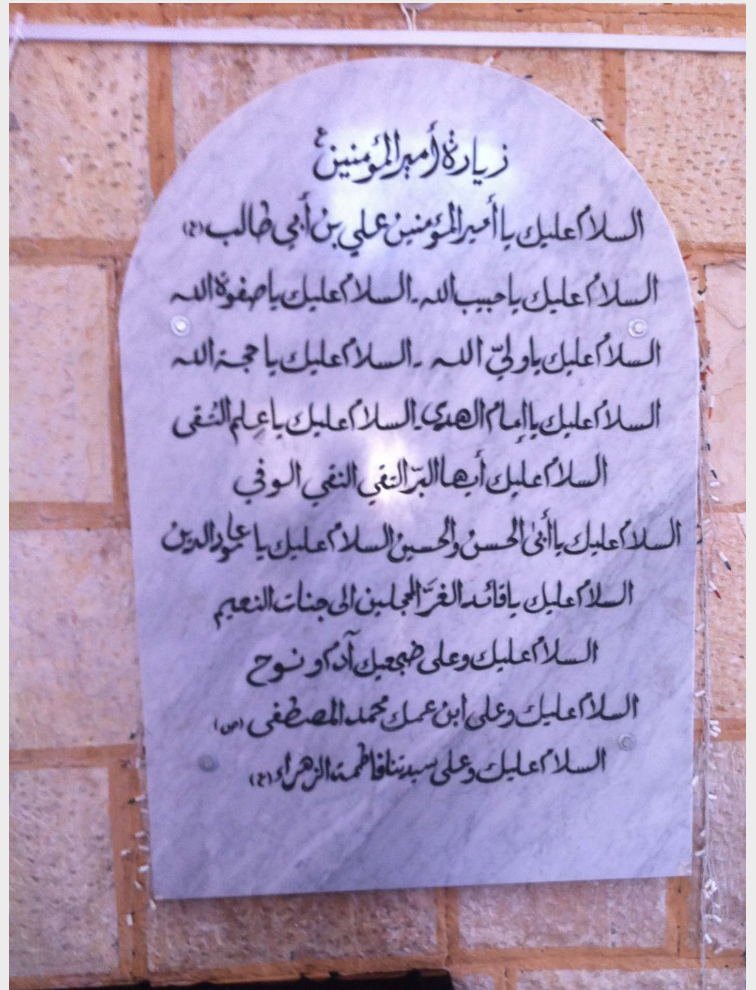 زيارة أمير المؤمنين ع
السلام عليك يا أمير المؤمنين علي بن أبي طالب (ع)
السلام عليك يا حبيب الله . السلام عليك يا صفوة الله
السلام عليك يا وليّ الله . السلام عليك يا حجة الله
السلام عليك يا إمام الهدى . السلام عليك يا علم التقى
السلام عليك أيها البرّ التقي النقي الوفي
السلام عليك يا أبى الحسن والحسين السلام عليك يا عمود الدين
السلام عليك يا قائد الغرّ المحجلين الى جنات النعيم
السلام عليك وعلى ضجيعيك آدم و نوح
السلام عليك وعلى ابن عمك محمد المصطفى (ص)
السلام عليك وعلى سيدتنا فاطمة الزهراء (ع)